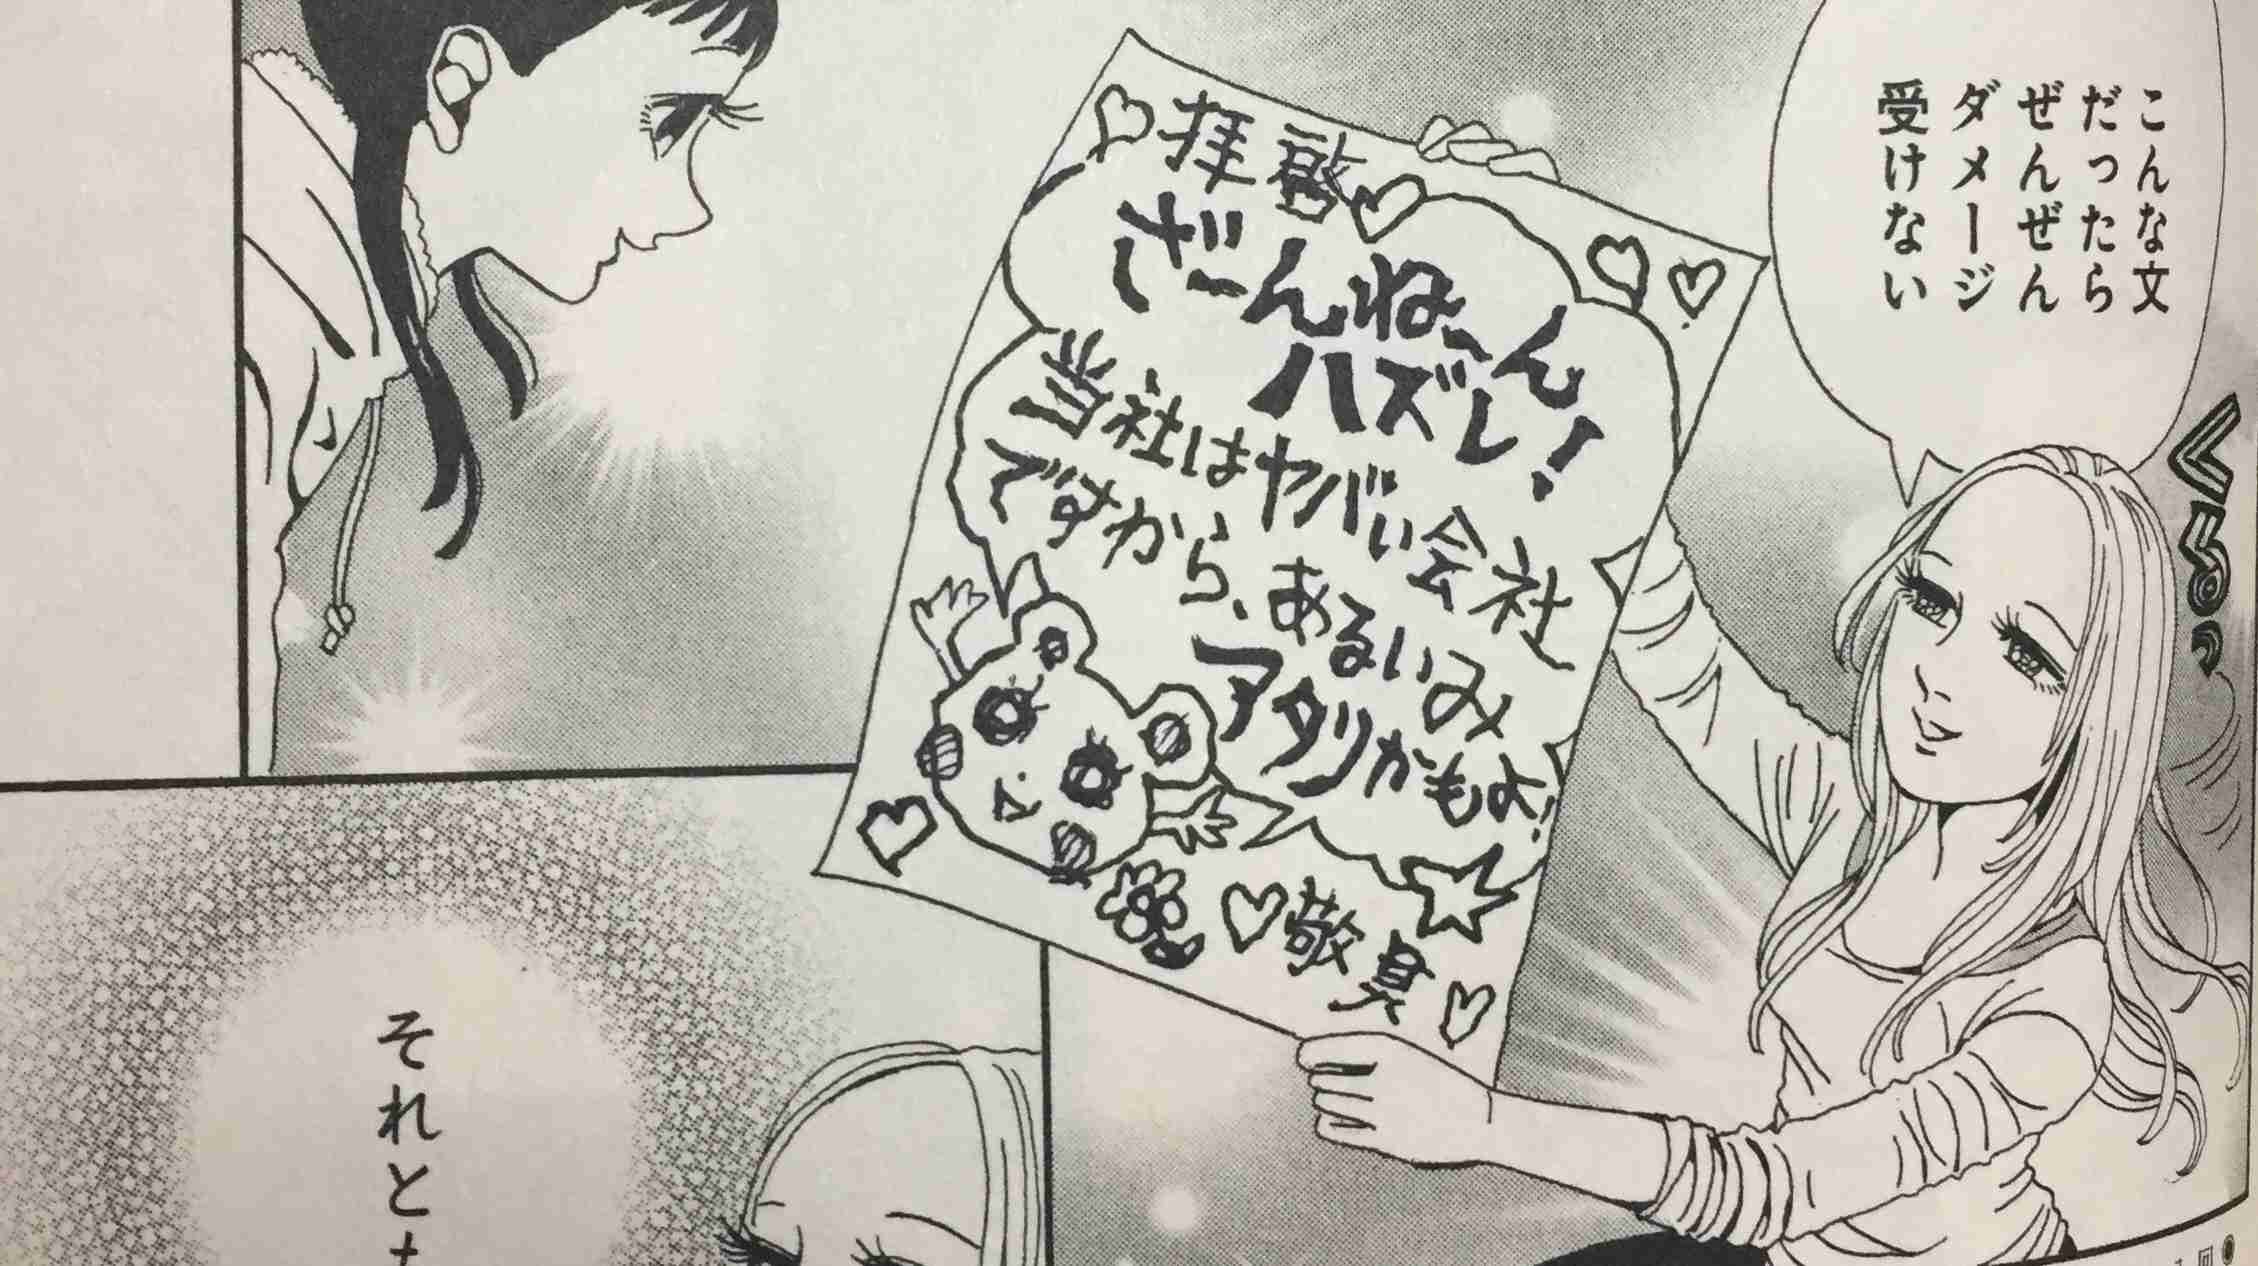 こんな文
だったら
ぜんぜん
ダメージ
受けない
拝啓
ざーんねーん
ハズレ!
当社はヤバい会社
ですから、あるいみ
アタリかもよ!
敬具
それと